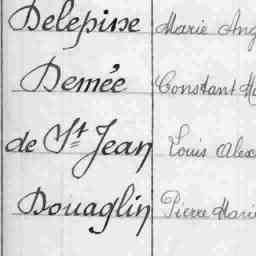 Delepine Marie Ang
Demée Constant Ma
de St Jean Louis Alex
Douaglin Pierre Marie